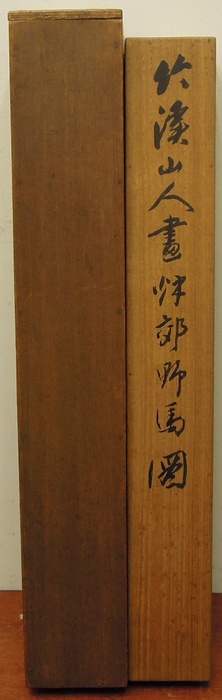 竹溪山人畫秌郊野馬圖